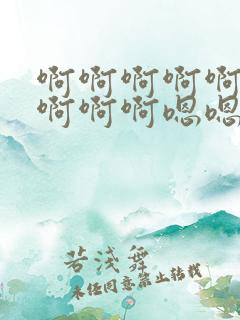 啊啊啊啊啊
啊啊啊嗯嗯
若浅舞
未经同意禁止转载